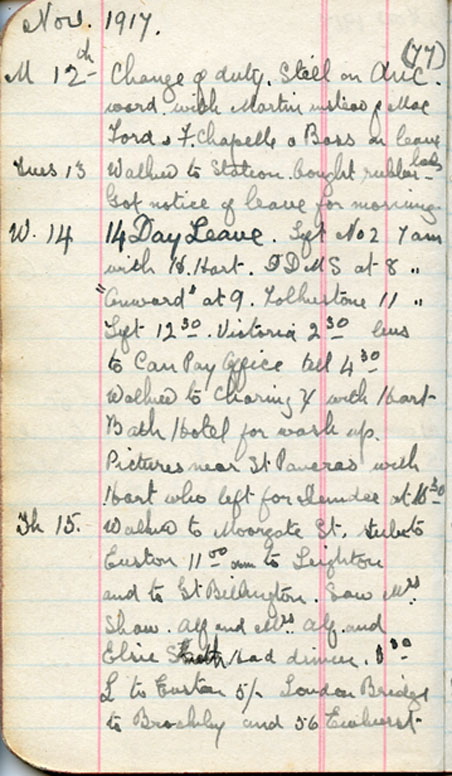 Nov. 1917.
(77)
M 12th Change of duty. Still on Aric.
ward. with Martin instead of Mac
Ford & F. Chapelle & Bass on leave
Tues 13 Walked to Station. bought rubber heels
Got notice of leave for morning.
W. 14 14 Day Leave. Lyft No 2 7 am
with H. Hart. DDMS at 8 "
"Onward" at 9. Folkestone 11 "
Lyft 12 30. Victoria 2 30 bus
to Can Pay Office till 4 30
Walked to Charing X with Hart
Bath Hotel for wash up.
Pictures near St Pancras with
Hart who left for Dundee at 30
Th 15. Walked to Moorgate St. tube to
Euston 11 00 am to Leighton
and to Gt Billington. Saw Mrs
Shaw. Alf and Mrs Alf. and
Elsie had dinner. 30
L to Euston 5/- London Bridge
to Brockley and 56 Ewhurst